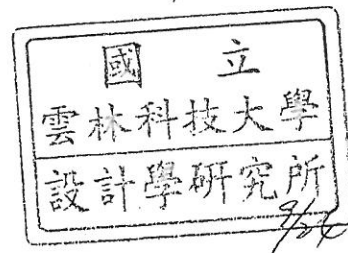 國立
雲林科技大學
設計學研究所
9/24